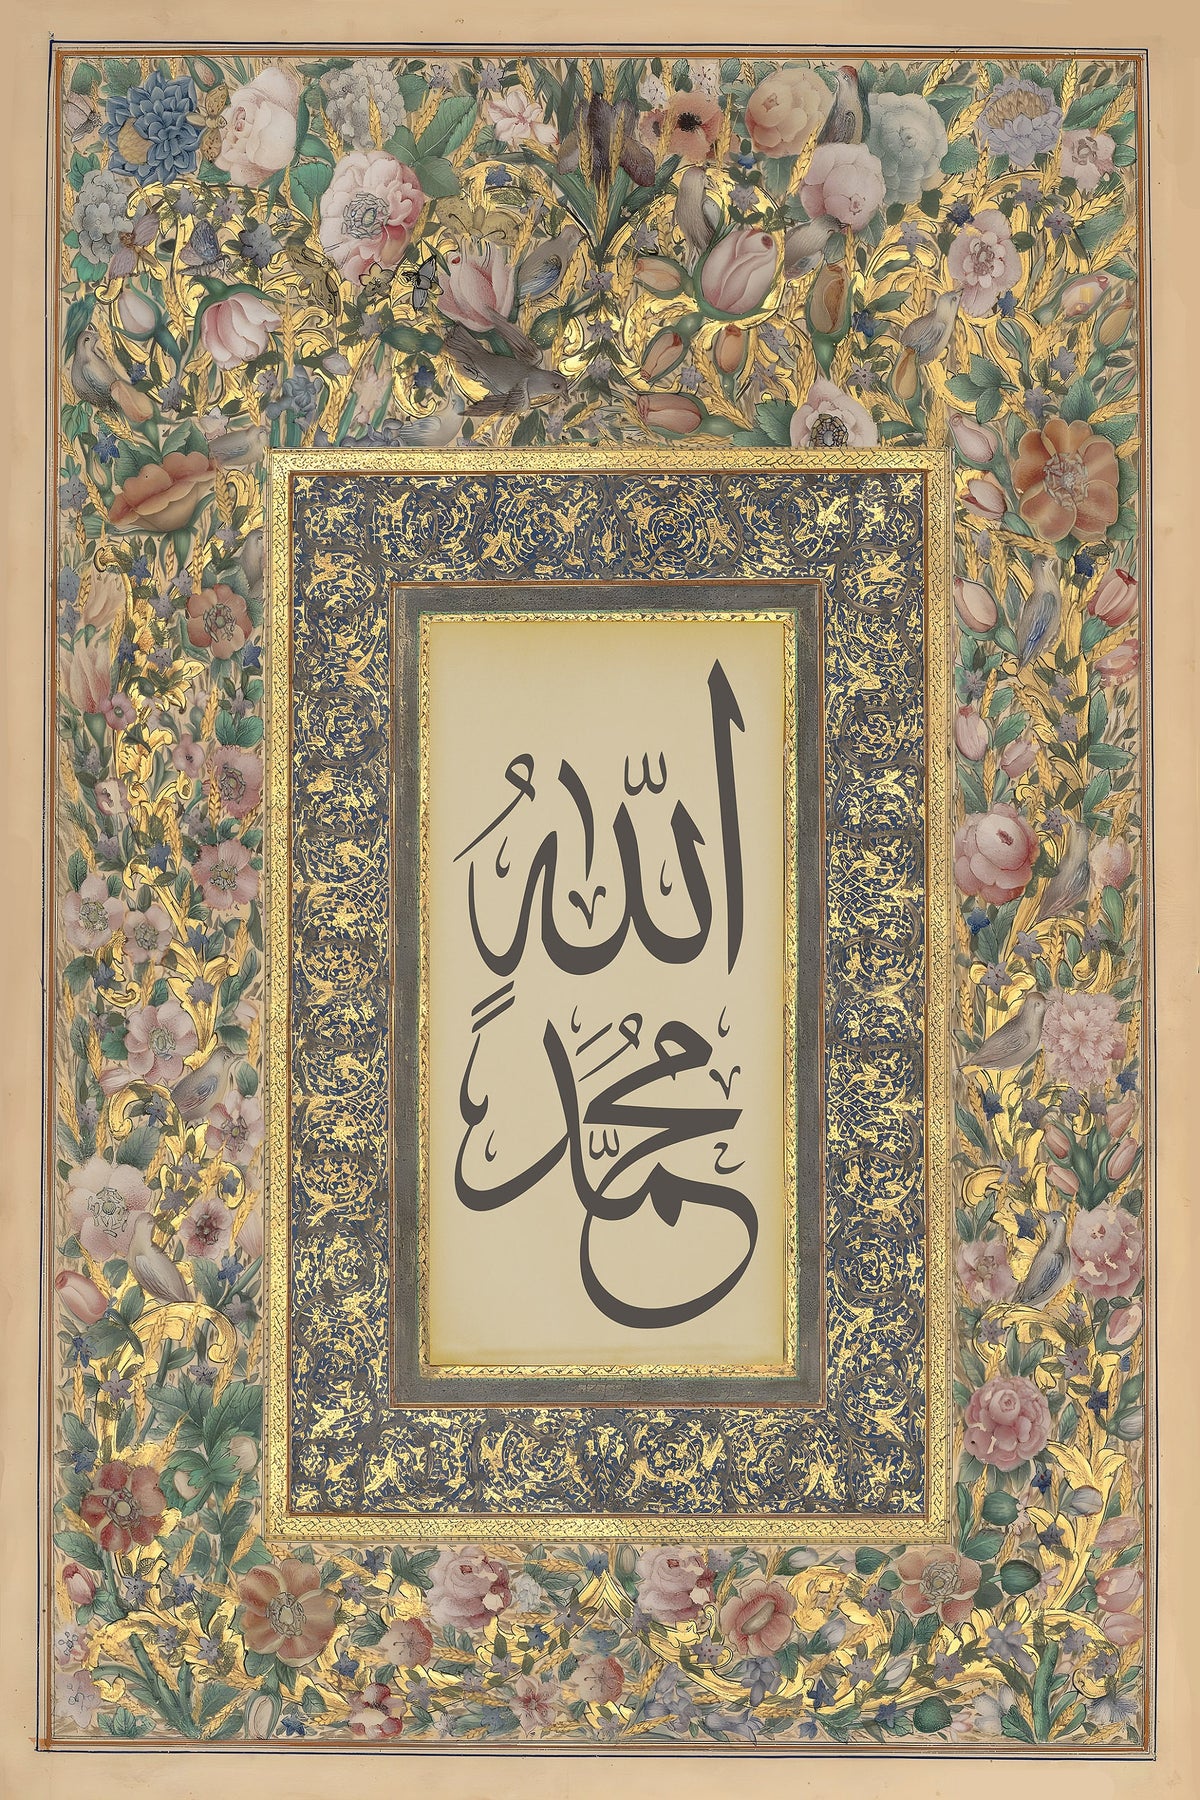 اللّٰهُ
مُحَمَّدٍ